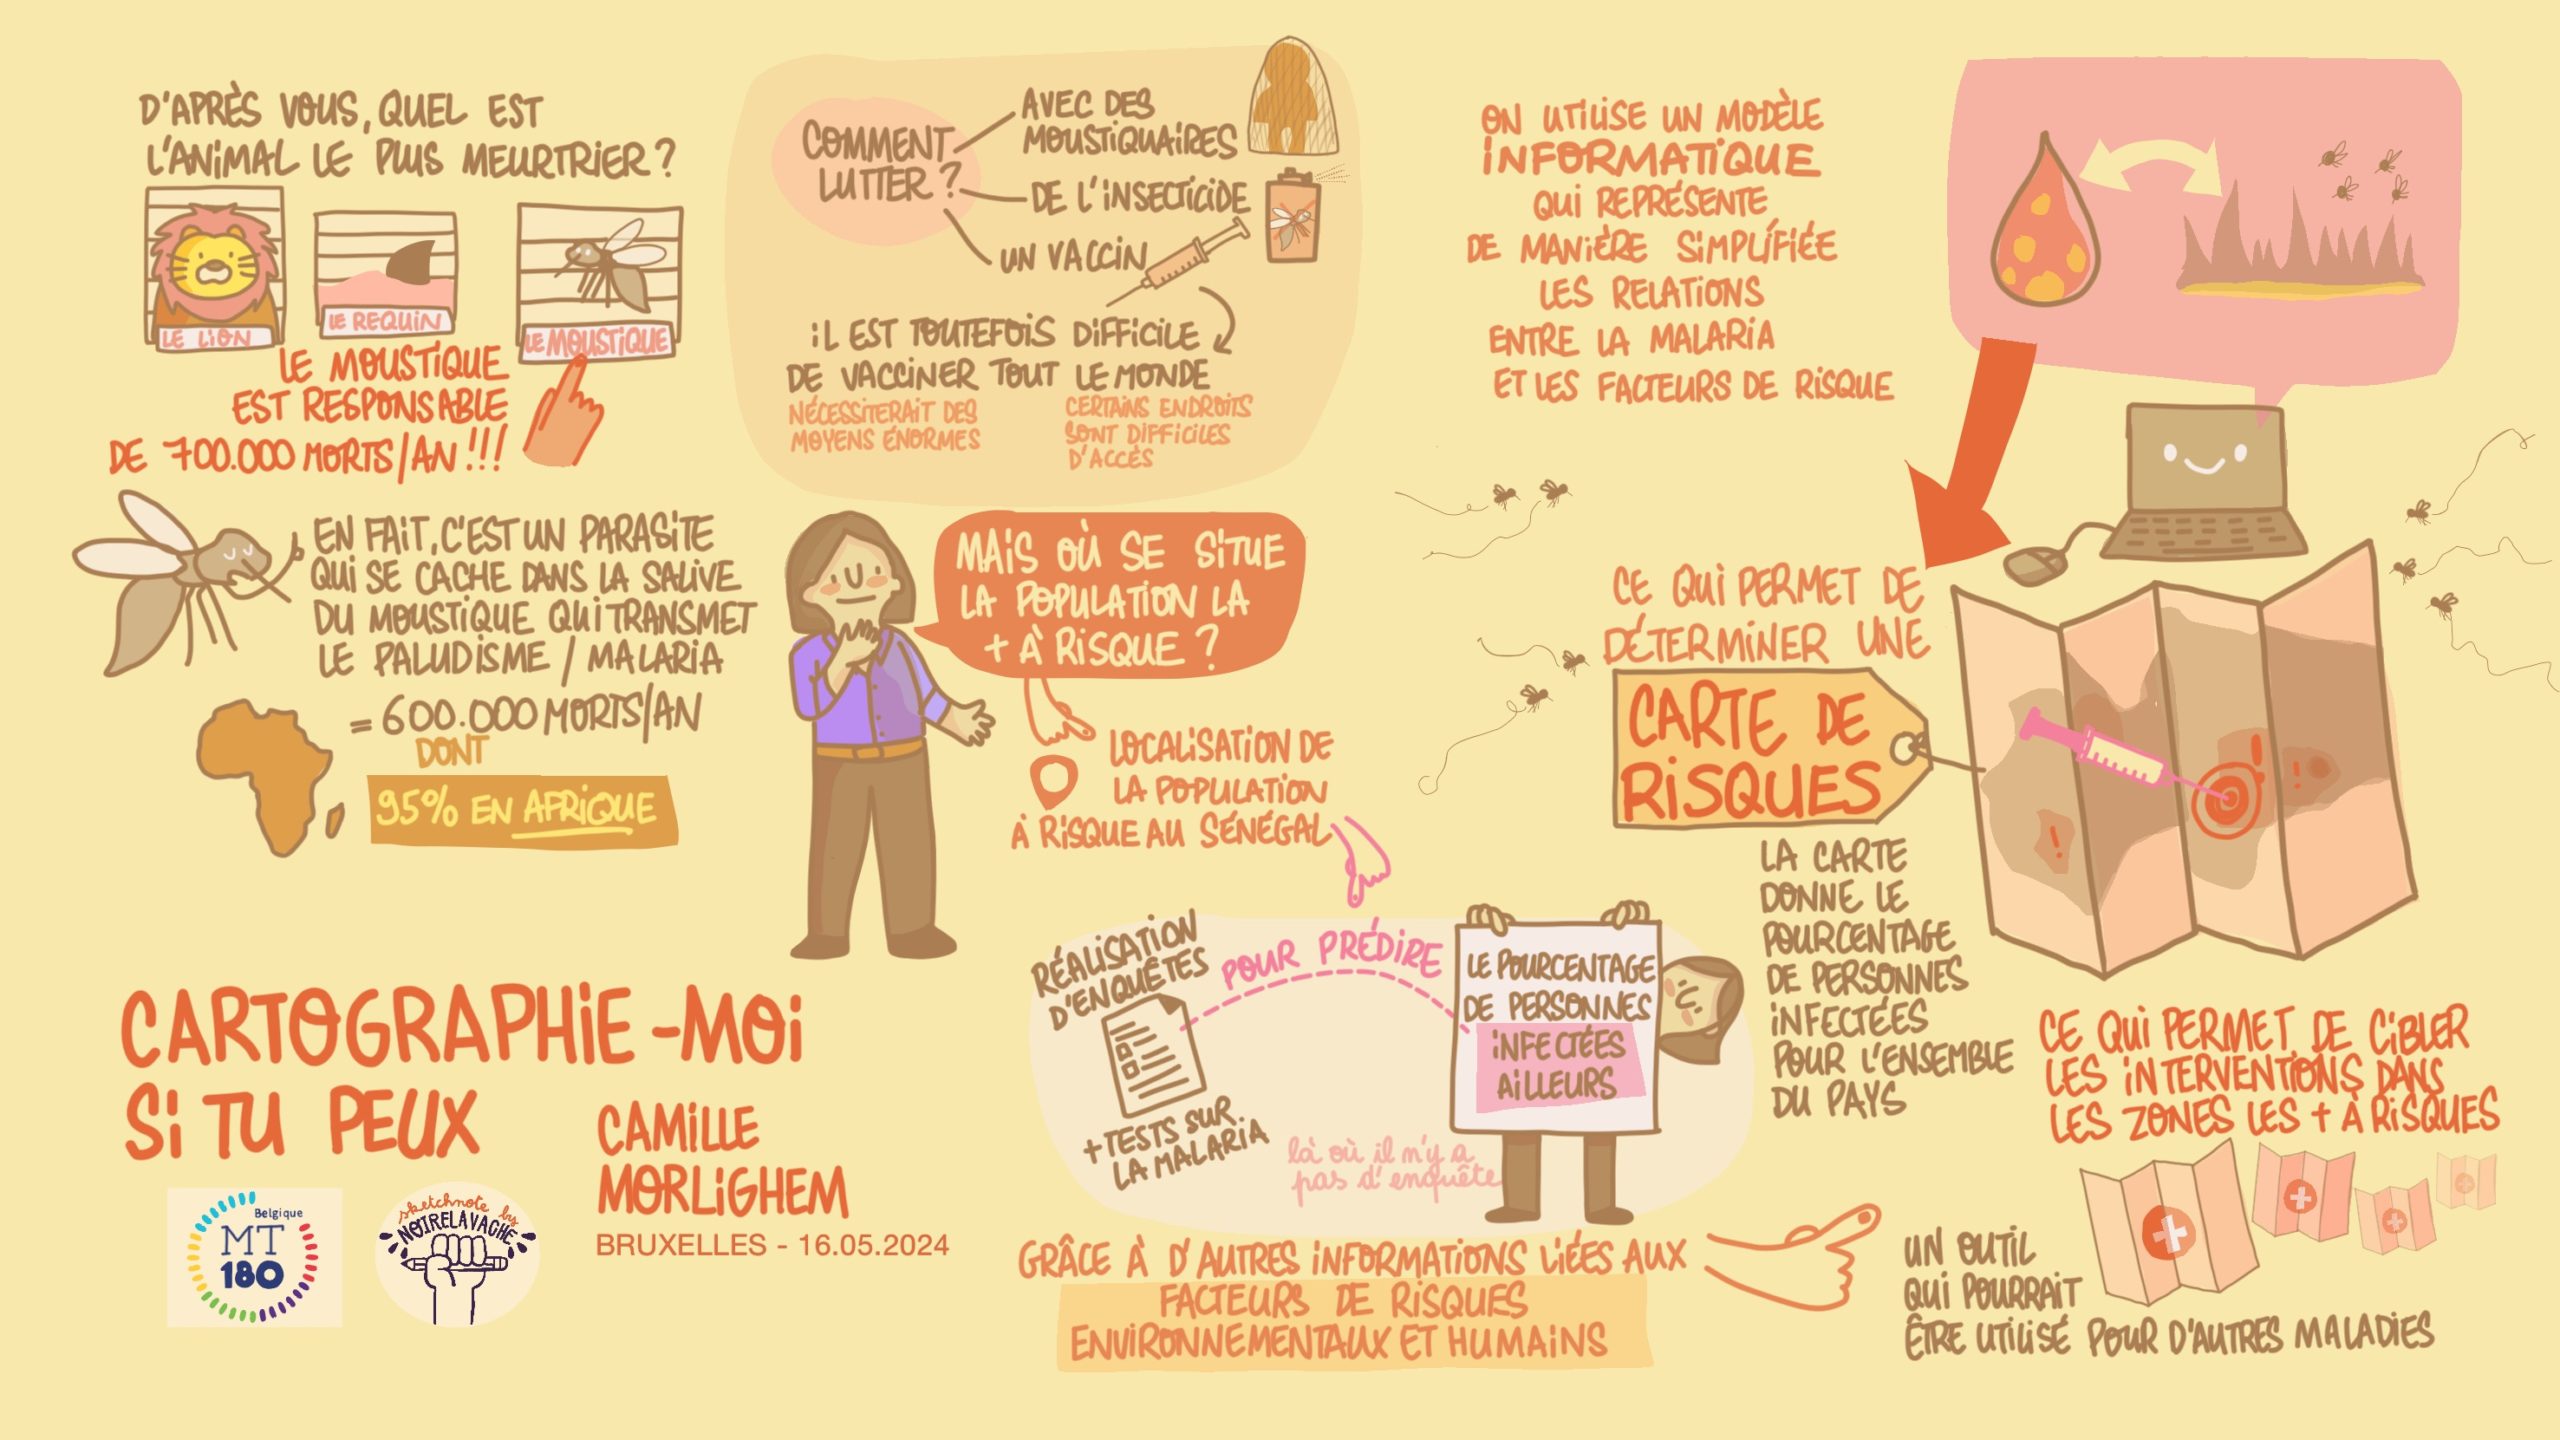 D'APRÈS VOUS, QUEL EST
L'ANIMAL LE PLUS MEURTRIER ?
LE LION
LE REQUIN
LE MOUSTIQUE
LE MOUSTIQUE
EST RESPONSABLE
DE 700.000 MORTS/AN !!!
EN FAIT, C'EST UN PARASITE
QUI SE CACHE DANS LA SALIVE
DU MOUSTIQUE QUI TRANSMET
LE PALUDISME / MALARIA
= 600.000 MORTS/AN
DONT
95% EN AFRIQUE
CARTOGRAPHIE-MOI
SI TU PEUX
CAMILLE
MORLIGHEM
BRUXELLES - 16.05.2024
Belgique
MT
180
sketchnote by
NOIRELAVACHE
COMMENT
LUTTER ?
AVEC DES
MOUSTIQUAIRES
DE L'INSECTICIDE
UN VACCIN
IL EST TOUTEFOIS DIFFICILE
DE VACCINER TOUT LE MONDE
NÉCESSITERAIT DES
MOYENS ÉNORMES
CERTAINS ENDROITS
SONT DIFFICILES
D'ACCÈS
MAIS OÙ SE SITUE
LA POPULATION LA
+ À RISQUE ?
LOCALISATION DE
LA POPULATION
À RISQUE AU SÉNÉGAL
RÉALISATION
D'ENQUÊTES
+ TESTS SUR
LA MALARIA
POUR PRÉDIRE
LE POURCENTAGE
DE PERSONNES
INFECTÉES
AILLEURS
là où il n'y a
pas d'enquête
GRÂCE À D'AUTRES INFORMATIONS LIÉES AUX
FACTEURS DE RISQUES
ENVIRONNEMENTAUX ET HUMAINS
ON UTILISE UN MODÈLE
INFORMATIQUE
QUI REPRÉSENTE
DE MANIÈRE SIMPLIFIÉE
LES RELATIONS
ENTRE LA MALARIA
ET LES FACTEURS DE RISQUE
CE QUI PERMET DE
DÉTERMINER UNE
CARTE DE
RISQUES
LA CARTE
DONNE LE
POURCENTAGE
DE PERSONNES
INFECTÉES
POUR L'ENSEMBLE
DU PAYS
CE QUI PERMET DE CIBLER
LES INTERVENTIONS DANS
LES ZONES LES + À RISQUES
UN OUTIL
QUI POURRAIT
ÊTRE UTILISÉ POUR D'AUTRES MALADIES